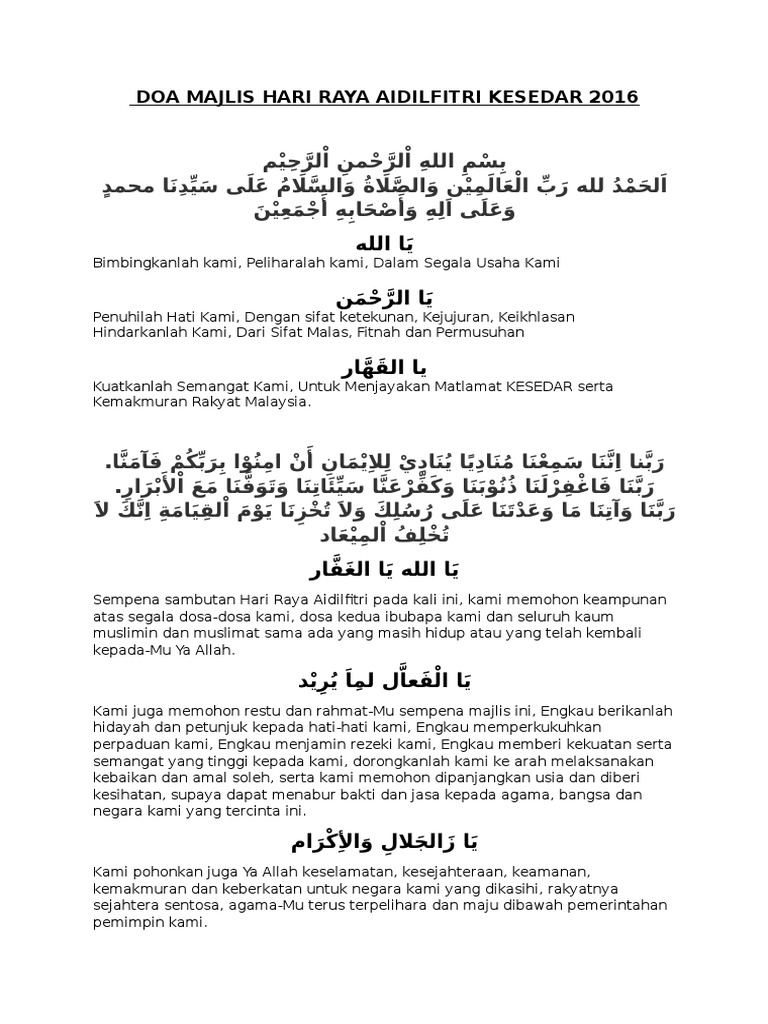 DOA MAJLIS HARI RAYA AIDILFITRI KESEDAR 2016
بِسْمِ اللهِ اْلرَّحْمنِ اْلرَّحِيْم
اَلحَمْدُ لله رَبِّ الْعَالَمِيْن وَالصَّلَاةُ وَالسَّلَامُ عَلَى سَيِّدِنَا محمدٍ
وَعَلَى اَلِهِ وَأَصْحَابِهِ أَجْمَعِيْنَ
يَا الله
Bimbingkanlah kami, Peliharalah kami, Dalam Segala Usaha Kami
يَا الرَّحْمَن
Penuhilah Hati Kami, Dengan sifat ketekunan, Kejujuran, Keikhlasan
Hindarkanlah Kami, Dari Sifat Malas, Fitnah dan Permusuhan
يا القَهَّار
Kuatkanlah Semangat Kami, Untuk Menjayakan Matlamat KESEDAR serta
Kemakmuran Rakyat Malaysia.
رَبَّنا اِنَّنَا سَمِعْنَا مُنَادِيًا يُنَادِيْ لِلاِيْمَانِ أَنْ امِنُوْا بِرَبِّكُمْ فَآمَنَّا.
رَبَّنَا فَاغْفِرْلَنَا ذُنُوْبَنَا وَكَفِّرْعَنَّا سَيِّئَاتِنَا وَتَوَفَّنَا مَعَ اْلأَبْرَارِ.
رَبَّنَا وَآتِنَا مَا وَعَدْتَنَا عَلَى رُسُلِكَ وَلاَ تُخْزِنَا يَوْمَ اْلقِيَامَةِ اِنَّكَ لاَ
تُخْلِفُ اْلمِيْعَاد
يَا الله يَا الغَفَّار
Sempena sambutan Hari Raya Aidilfitri pada kali ini, kami memohon keampunan
atas segala dosa-dosa kami, dosa kedua ibubapa kami dan seluruh kaum
muslimin dan muslimat sama ada yang masih hidup atau yang telah kembali
kepada-Mu Ya Allah.
يَا الْفَعاَّل لمِاَ يُرِيْد
Kami juga memohon restu dan rahmat-Mu sempena majlis ini, Engkau berikanlah
hidayah dan petunjuk kepada hati-hati kami, Engkau memperkukuhkan
perpaduan kami, Engkau menjamin rezeki kami, Engkau memberi kekuatan serta
semangat yang tinggi kepada kami, dorongkanlah kami ke arah melaksanakan
kebaikan dan amal soleh, serta kami memohon dipanjangkan usia dan diberi
kesihatan, supaya dapat menabur bakti dan jasa kepada agama, bangsa dan
negara kami yang tercinta ini.
يَا زَالجَلالِ وَالأِكْرَام
Kami pohonkan juga Ya Allah keselamatan, kesejahteraan, keamanan,
kemakmuran dan keberkatan untuk negara kami yang dikasihi, rakyatnya
sejahtera sentosa, agama-Mu terus terpelihara dan maju dibawah pemerintahan
pemimpin kami.